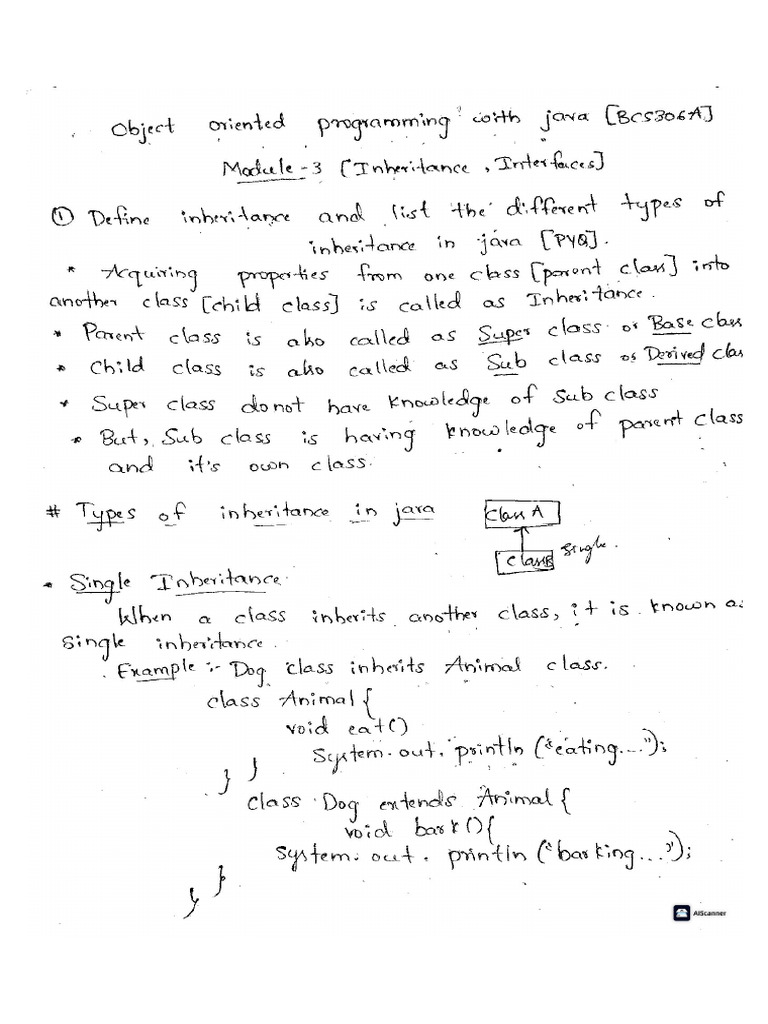 Object oriented programming with java [BCS306A]
Module-3 [Inheritance, Interfaces]
① Define inheritance and list the different types of
inheritance in java [PYQ].
* Acquiring properties from one class [parent class] into
another class [child class] is called as Inheritance.
* Parent class is also called as Super class or Base class
* Child class is also called as Sub class or Derived clas
* Super class donot have knowledge of Sub class
* But, Sub class is having knowledge of parent class
and it's own class.
# Types of inheritance in java
Class A
Class B
Single.
* Single Inheritance.
When a class inherits another class, it is known as
single inheritance.
Example :- Dog class inherits Animal class.
class Animal {
void eat()
System.out.println ("eating....");
} }
class Dog extends Animal {
void bark() {
System.out.println ("barking...");
}
}
AIScanner